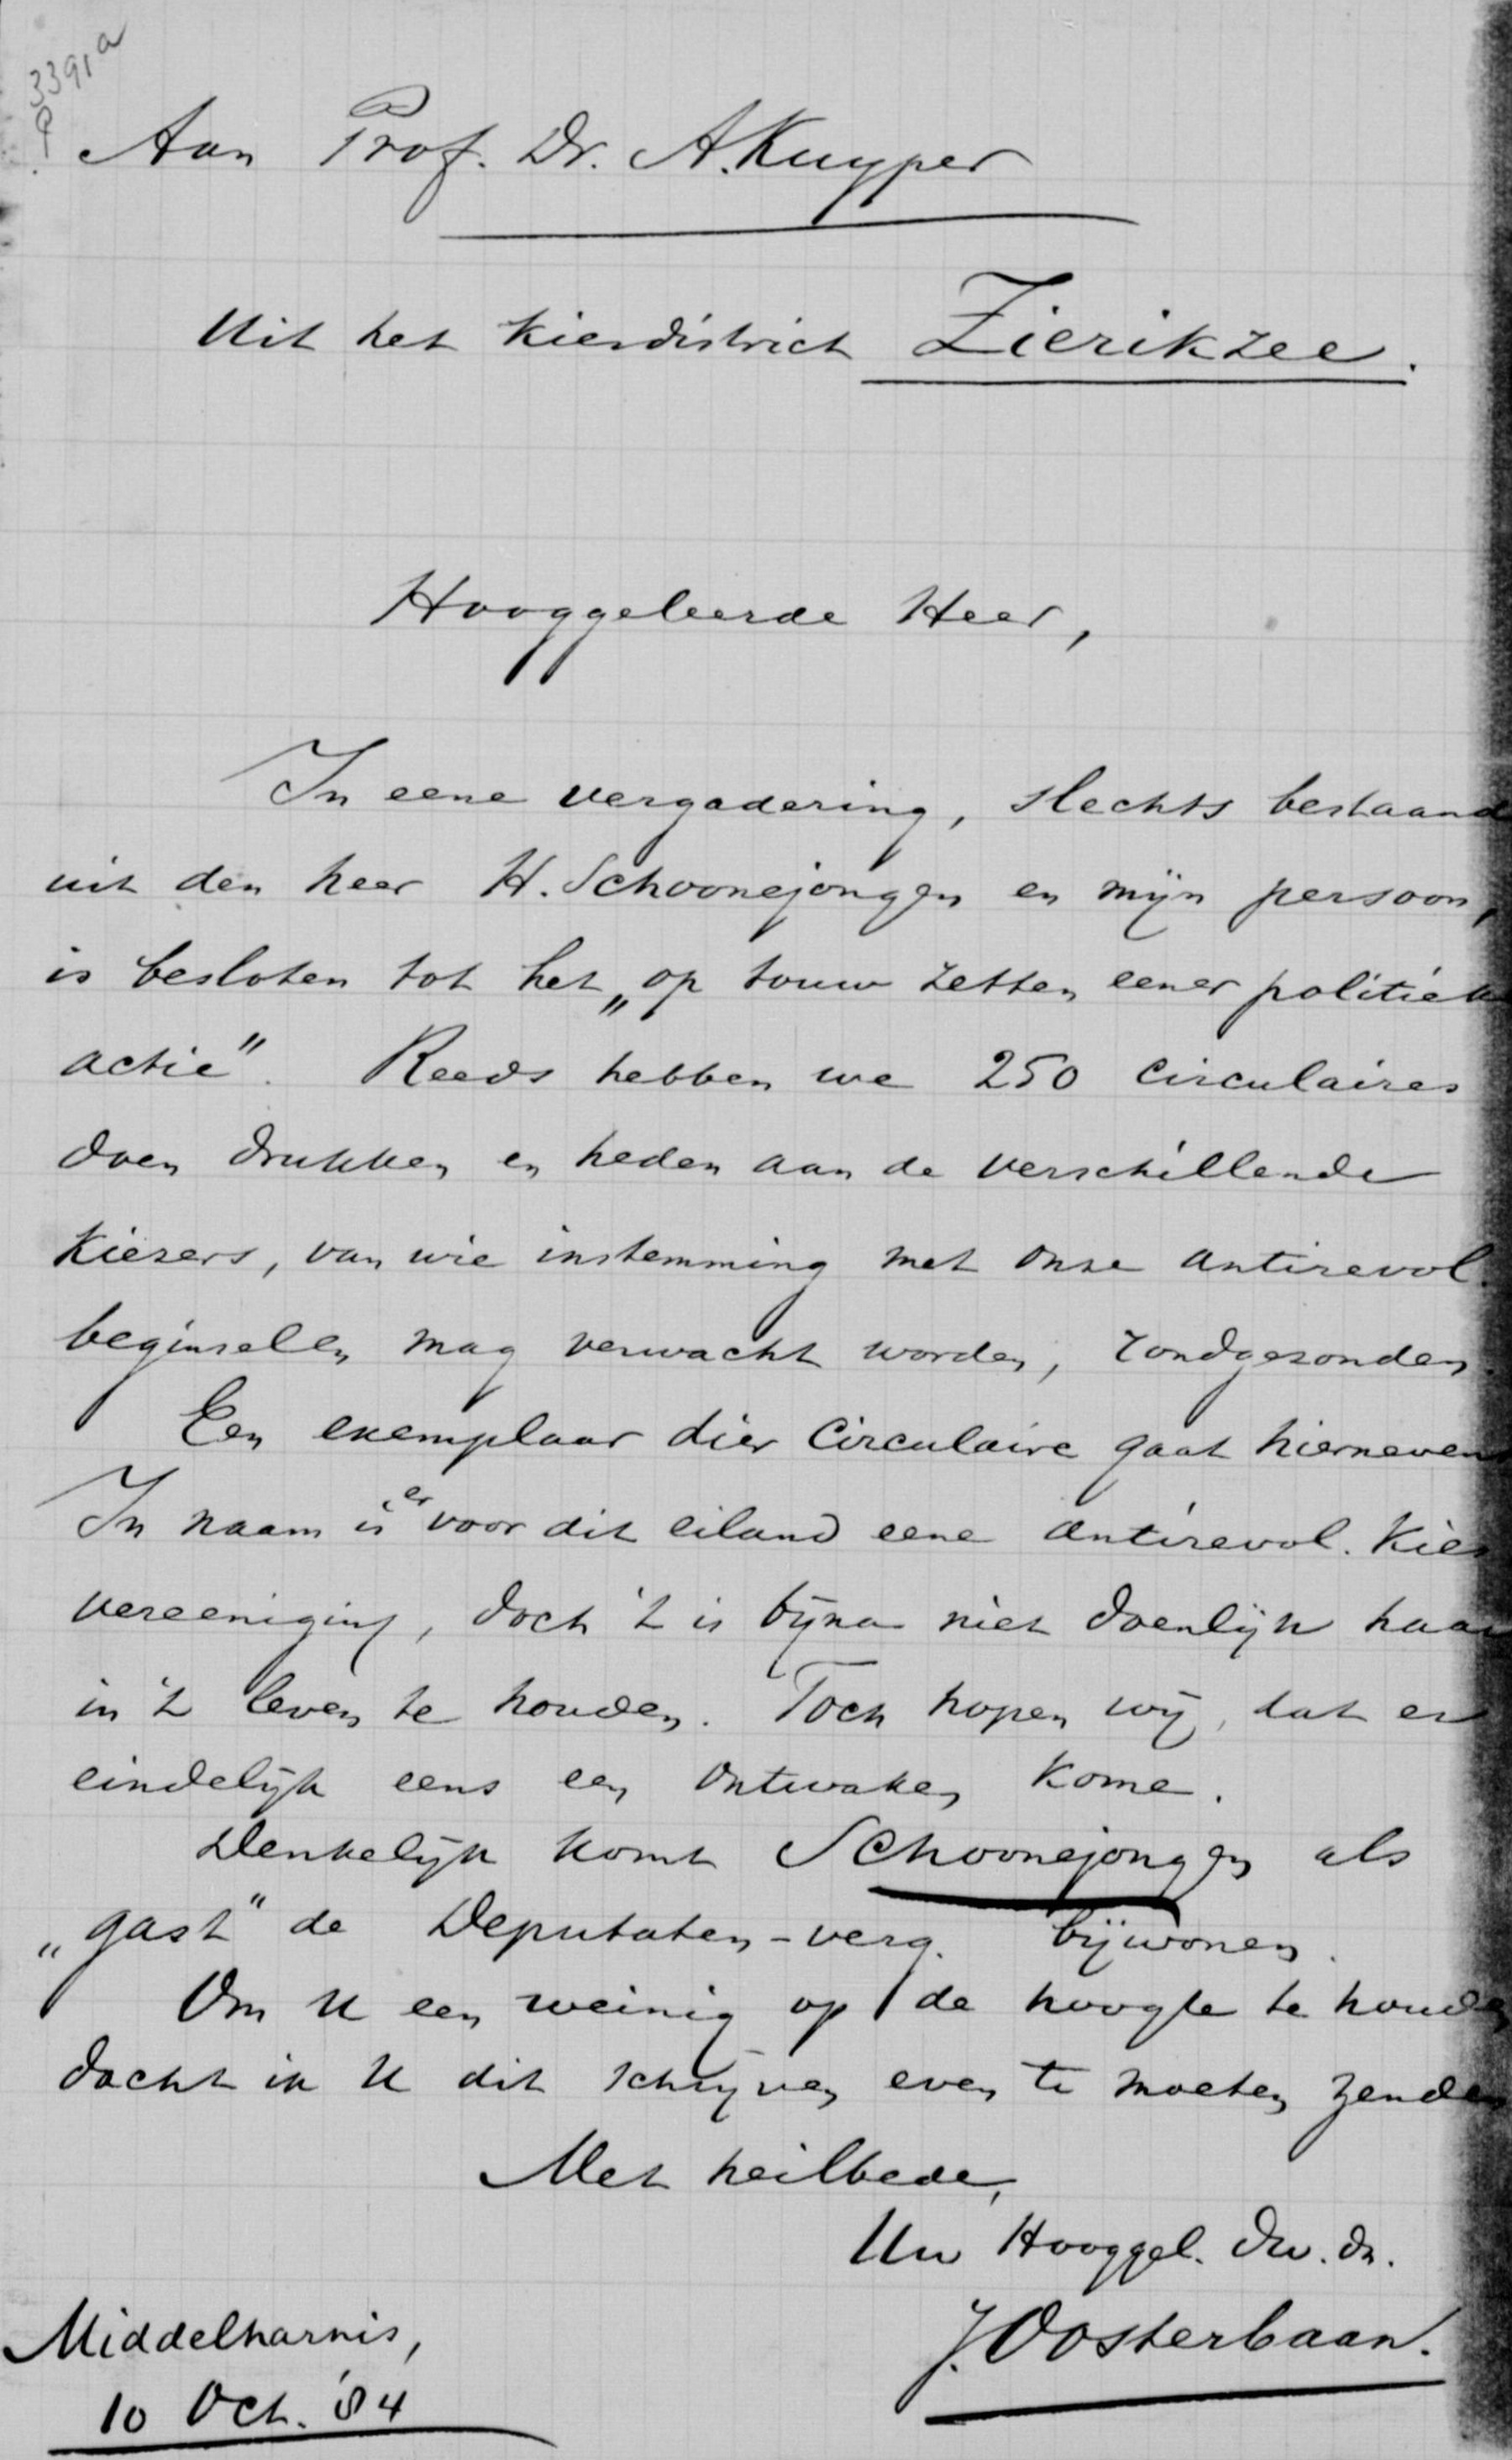 3391a
Aan Prof. Dr. A. Kuyper
Uit het Kiesdistrict Zierikzee.
Hooggeleerde Heer,
In eene vergadering, slechts bestaand
uit den heer H. Schoonejongen en mijn persoon,
is besloten tot het „op touw zetten eener politiek
actie". Reeds hebben we 250 circulaires
doen drukken en heden aan de verschillende
Kiezers, van wie instemming met onze antirevol.
beginselen mag verwacht worden, rondgezonden.
Een exemplaar dier Circulaire gaat hiernevens
In naam is er voor dit eiland eene antirevol. Kies
vereeniging, doch 't is bijna niet doenlijk haar
in 't leven te houden. Toch hopen wij, dat er
eindelijk eens een ontwaken Kome.
Denkelijk komt Schoonejongen als
„gast" de Deputaten-verg. bijwonen.
Om U een weinig op de hoogte te houden
dacht ik U dit schrijven even te moeten zenden
Met heilbede,
Uw Hooggel. dw. dr.
J. Oosterbaan.
Middelharnis,
10 Oct. '84